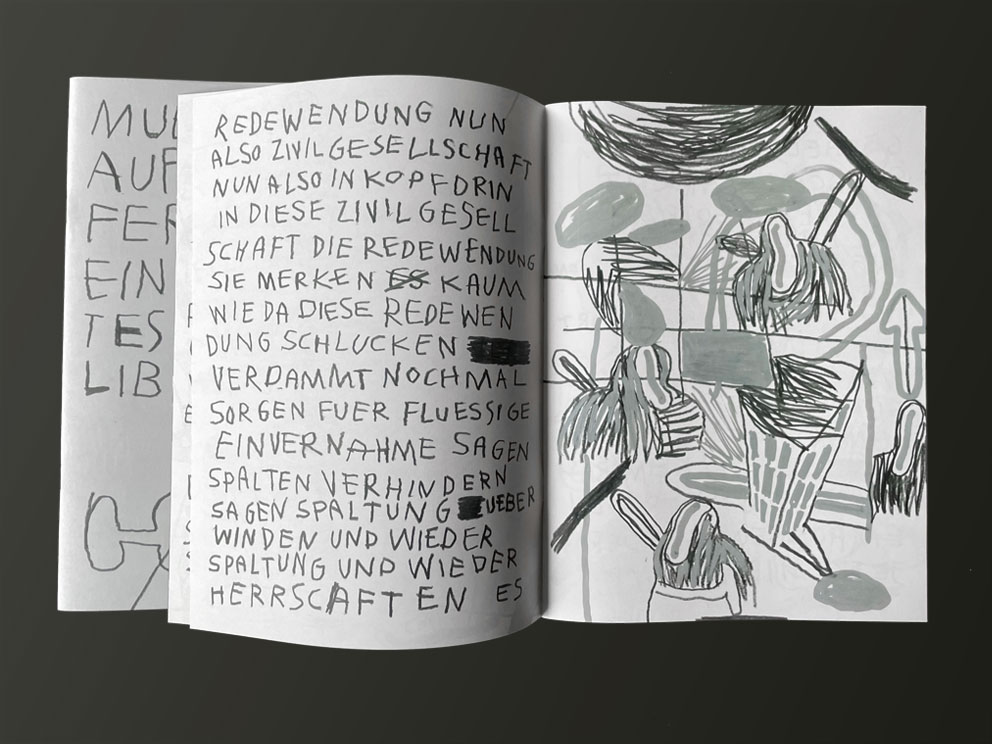 MU
AUF
FER
EIN
TES
LIB
REDEWENDUNG NUN
ALSO ZIVILGESELLSCHAFT
NUN ALSO IN KOPF DRIN
IN DIESE ZIVILGESELL
SCHAFT DIE REDEWENDUNG
SIE MERKEN ES KAUM
WIE DA DIESE REDEWEN
DUNG SCHLUCKEN
VERDAMMT NOCHMAL
SORGEN FUER FLUESSIGE
EINVERNAHME SAGEN
SPALTEN VERHINDERN
SAGEN SPALTUNG UEBER
WINDEN UND WIEDER
SPALTUNG UND WIEDER
HERRSCAFTEN ES